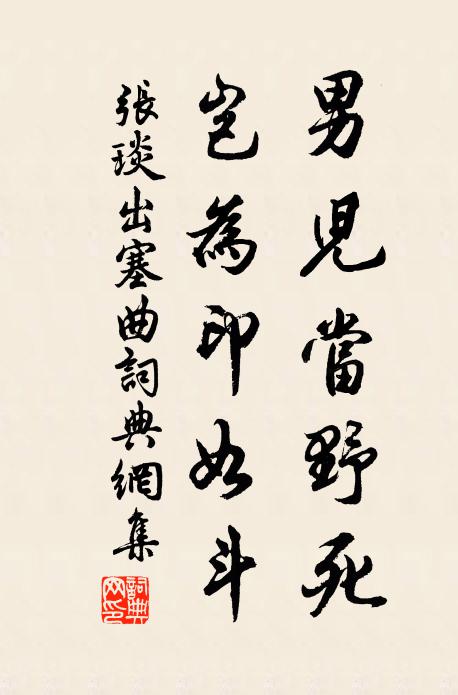 男兒當野死
豈為印如斗
張琰出塞曲詞典網集
詞典网印